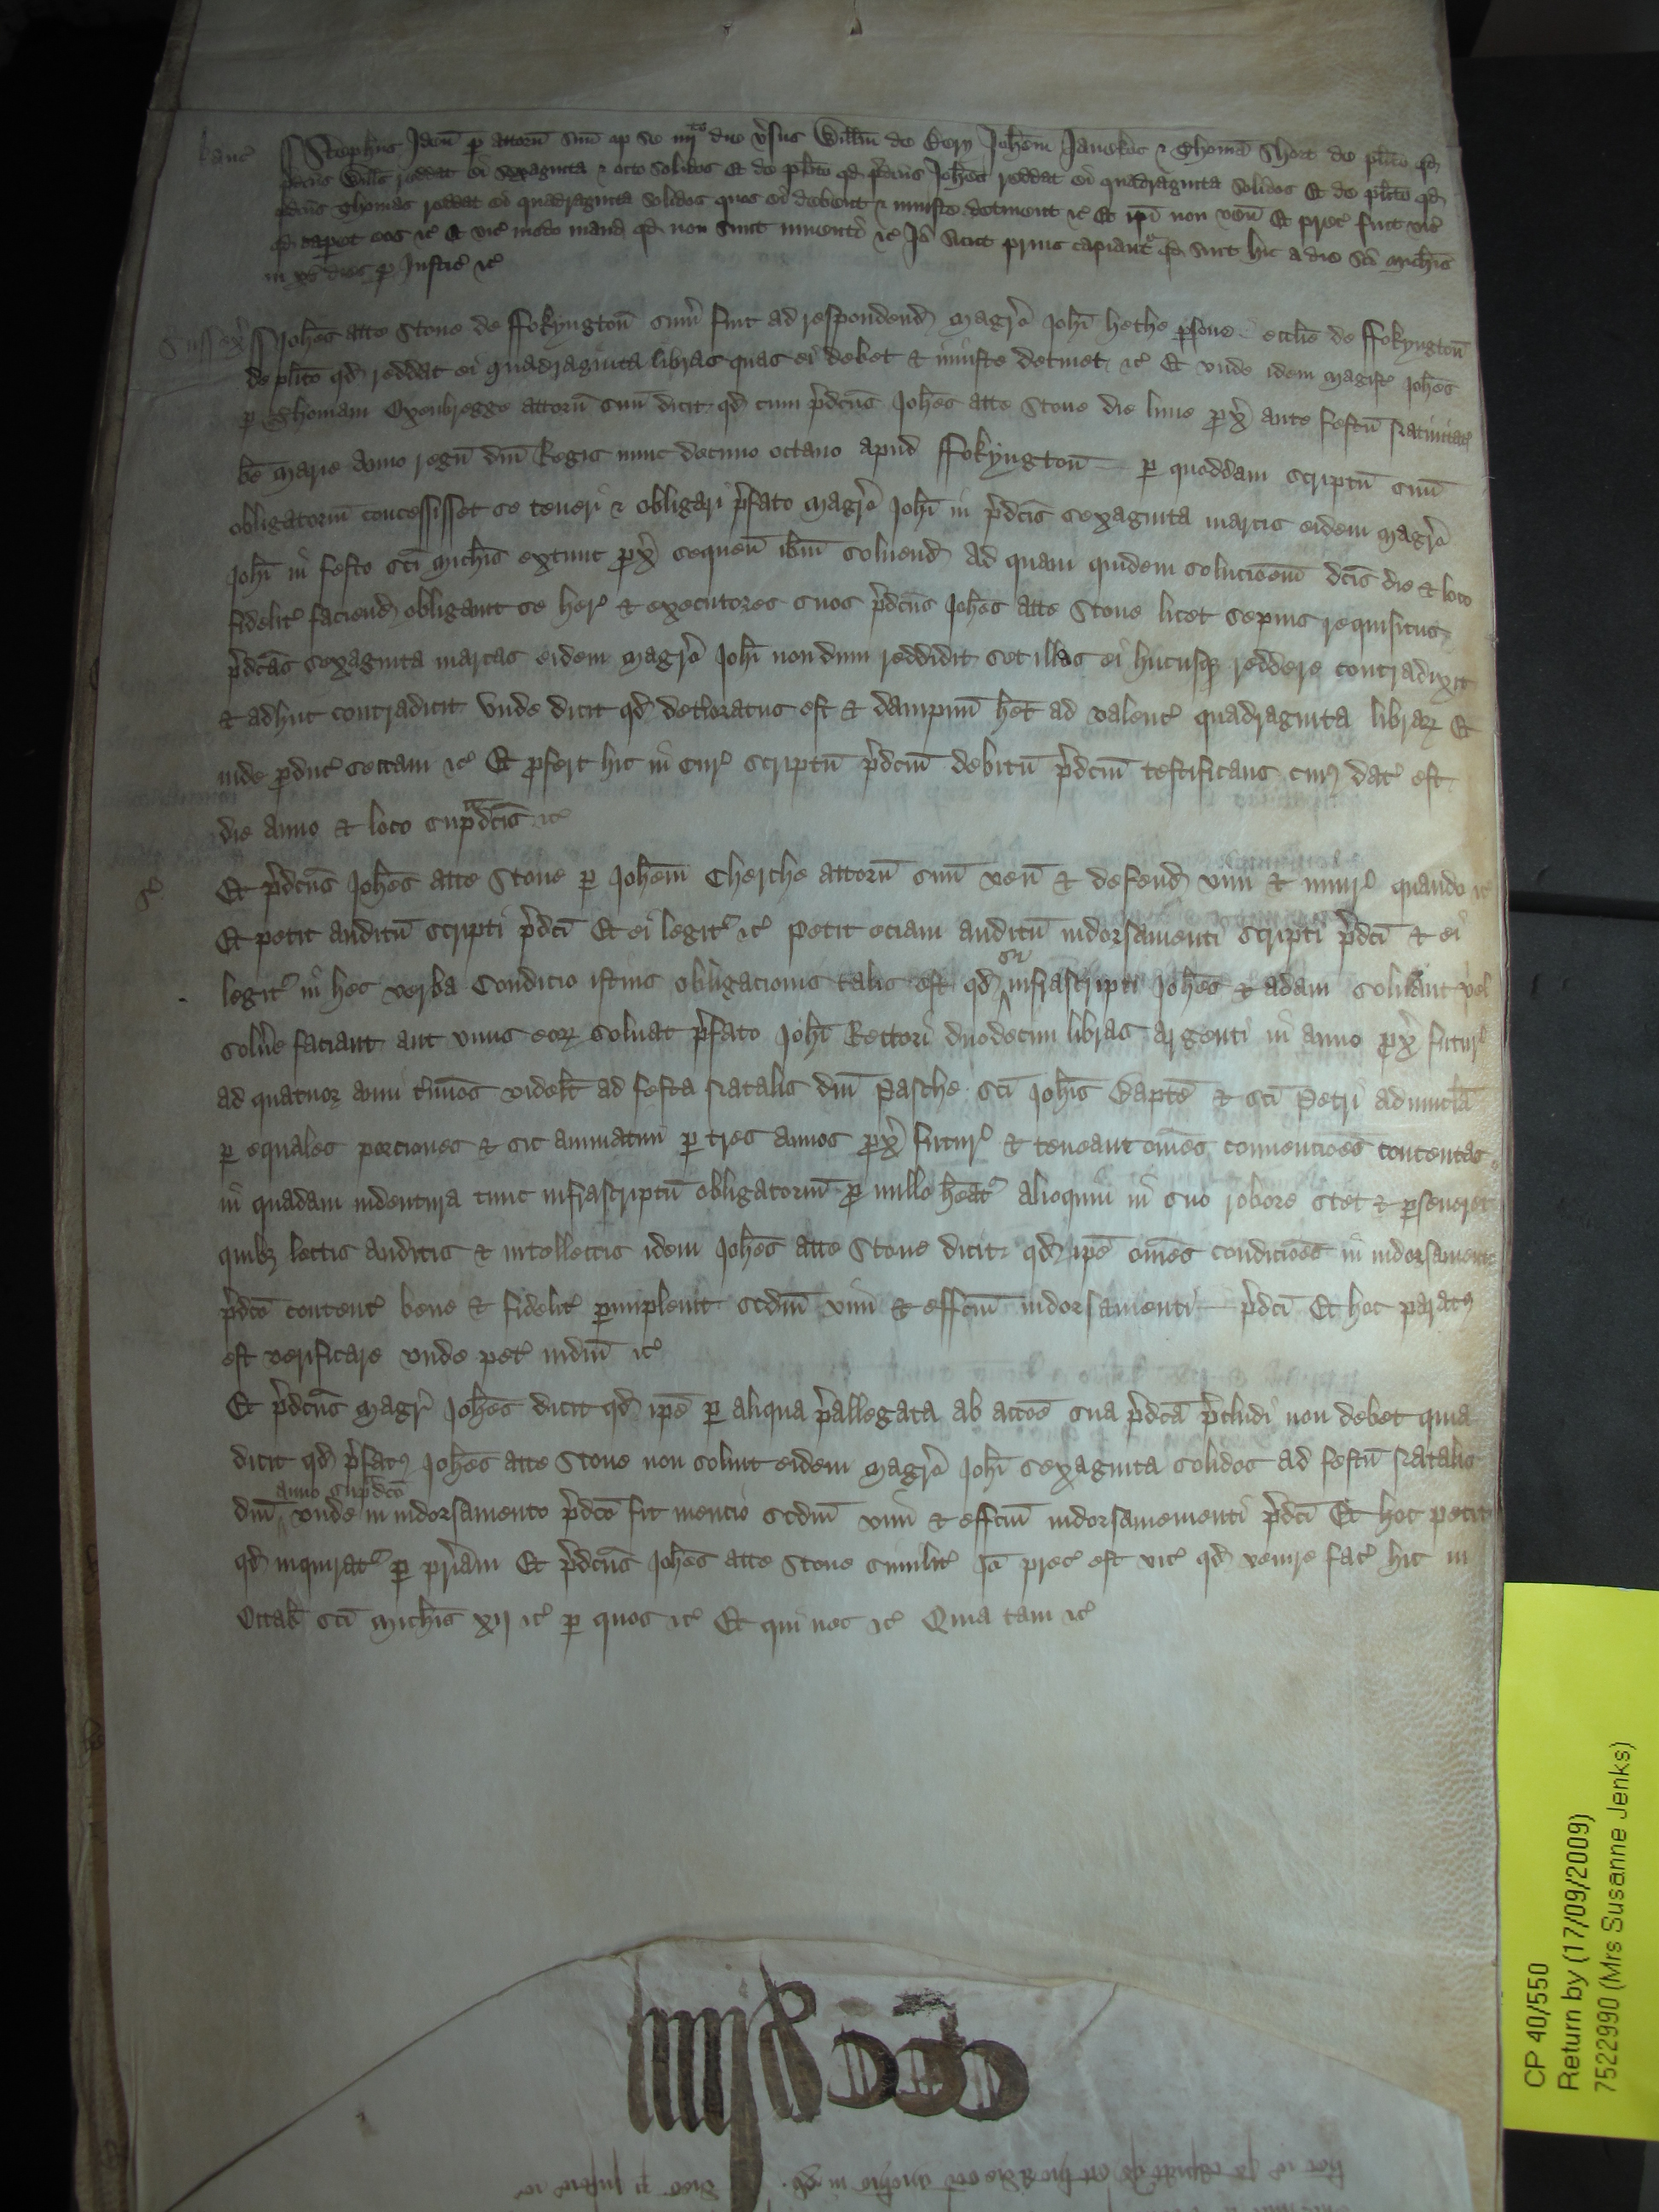 kanc̉
Stephus Iden̄ p attorn̄ suū op se iiijto die v̉sus Willm̄ de Bery Joh̄em Janekes & Thomā Short de pl̄ito qd
p̉dcus Will̄s reddat ei sexaginta & octo solidos Et de pl̄ito qd p̉dcus Joh̄es reddat ei quadraginta solidos Et de pl̄ito qd
p̉dcus Thomas reddat ei quadraginta solidos quos ei debent & iniuste detinent &c̉ Et ip̄i non ven̄ Et prec̉ fuit vic̉
qd caperet eos &c̉ Et vic̉ modo mand̉ qd non sunt inuenti &c̉ Jō sicut prius capiant̉ qd sint hic a die sc̄i Mich̄is
in xv dies p Justic̉ &c̉
Sussex̉ Joh̄es atte Stone de ffokyngton̄ sum̄ fuit ad respondend̉ Magr̄o Joh̄i hethe p̱sone eccl̄ie de ffokyngton̄
de pl̄ito qd̉ reddat ei quadraginta libras quas ei debet & iniuste detinet &c̉ Et vnde idem Magist̉ Joh̄es
p Thomam Oxenbregge attorn̄ suū dicit qd̉ cum p̉dcus Joh̄es atte Stone die lune prox̉ ante festū Natiuitat̉
be Marie Anno regn̄ dn̄i Regis nunc decimo octauo apud ffokyngton̄ p quoddam scriptū suū
obligatoriū concessisset se teneri & obligari p̉fato Magr̄o Joh̄i in p̉dcis sexaginta marcis eidem Magr̄o
Joh̄i in festo sc̄i Mich̄is extunc prox̉ sequen̄ ib̄m soluend̉ Ad quam quidem soluc̄ōem dc̄is die & loco
fidelit̉ faciend̉ obligauit se her̉ & executores suos p̉dcus Joh̄es atte Stone licet sepius requisitus
p̉dcas sexaginta marcas eidem Magr̄o Joh̄i nondum reddidit set illas ei hucusq reddere contradixit
& adhuc contradicit Vnde dicit qd̉ deterioratus est & dampnū h̄et ad valenc̉ quadraginta librar̉ Et
inde p̱duc̉ sectam &c̉ Et p̱fert hic in Cur̉ scriptū p̉dcm debitū p̉dcm testificans cuiꝰ dat̉ est
die anno & loco sup̱dcis &c̉
Et p̉dcus Joh̄es atte Stone p Joh̄em Cherche attorn̄ suū ven̄ & defend̉ vim & iniur̉ quando &c̉
Et petit auditū scripti p̉dci Et ei legit̉ &c̉ Petit eciam auditū indorsamenti scripti p̉dci & ei
legit̉ in hec verba Condicio istius obligacionis talis est qd̉ si infrascripti Joh̄es & Adam soluant vel
solủe faciant aut vnus eor̉ soluat p̉fato Joh̄i Rectori duodecim libras argenti in anno prox̉ futur̉
ad quatuor anni t̉mios videlt̉ ad festa Natalis dn̄i Pasche sc̄i Joh̄is Bapt̄e & sc̄i Petri aduinc̄la
p equales porciones & sic annuatim p tres annos prox̉ futur̉ & teneant om̄es conuenc̄oes contentas
in quadam indentura tunc infrascriptū obligatoriū p nullo h̄eat̉ alioquin in suo robore stet & p̱seueret
quibꝫ lectis auditis & intellectis idem Joh̄es atte Stone dicit qd̉ ip̄e om̄es condic̄oes in indorsamento
p̉dco content̉ bene & fidelit̉ p̱impleuit scdm̄ vim & effcm̄ indorsamenti p̉dci Et hoc paratꝰ
est verificare vnde pet̉ iudm̄ &c̉
Et p̉dcus Magr̉ Joh̄es dicit qd̉ ip̄e p aliqua p̉allegata ab acc̄oe sua p̉dca p̉cludi non debet quia
dicit qd̉ p̉fatꝰ Joh̄es atte Stone non soluit eidem Magr̄o Joh̄i sexaginta solidos ad festū Natalis
dn̄i anno sup̱dco vnde in indorsamento p̉dco fit mencio scdm̄ vim & effcm̄ indorsamementi p̉dci Et hoc petit
qd̉ inquirat̉ p pr̉iam Et p̉dcus Joh̄es atte Stone similit̉ Jō prec̉ est vic̉ qd̉ venire fac̉ hic in
Octab̉ sc̄i Mich̄is xij &c̉ p quos &c̉ Et qui nec &c̉ Quia tam &c̉
CP 40/550
Return by (17/09/2009)
7522990 (Mrs Susanne Jenks)